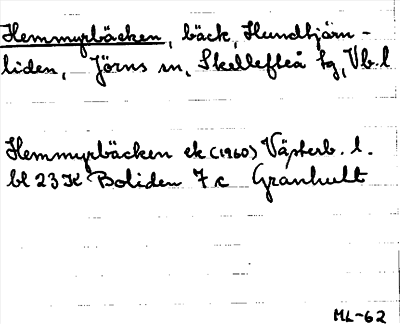 Hemmyrbäcken, bäck, Hundtjärn-
liden, Jörns sn, Skellefteå tg, Vb. l
Hemmyrbäcken ek (1960) Västerb. l.
bl 23 K Boliden 7 c Granhult
ML-62